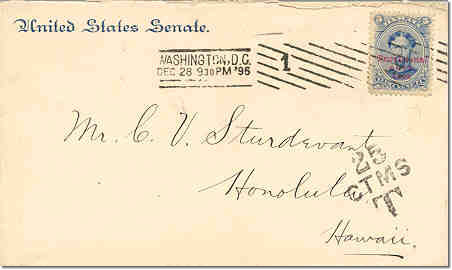 United States Senate.
WASHINGTON, D.C.
DEC 28 930PM '96
1
Mr. C. V. Sturdevant
Honolulu
Hawaii.